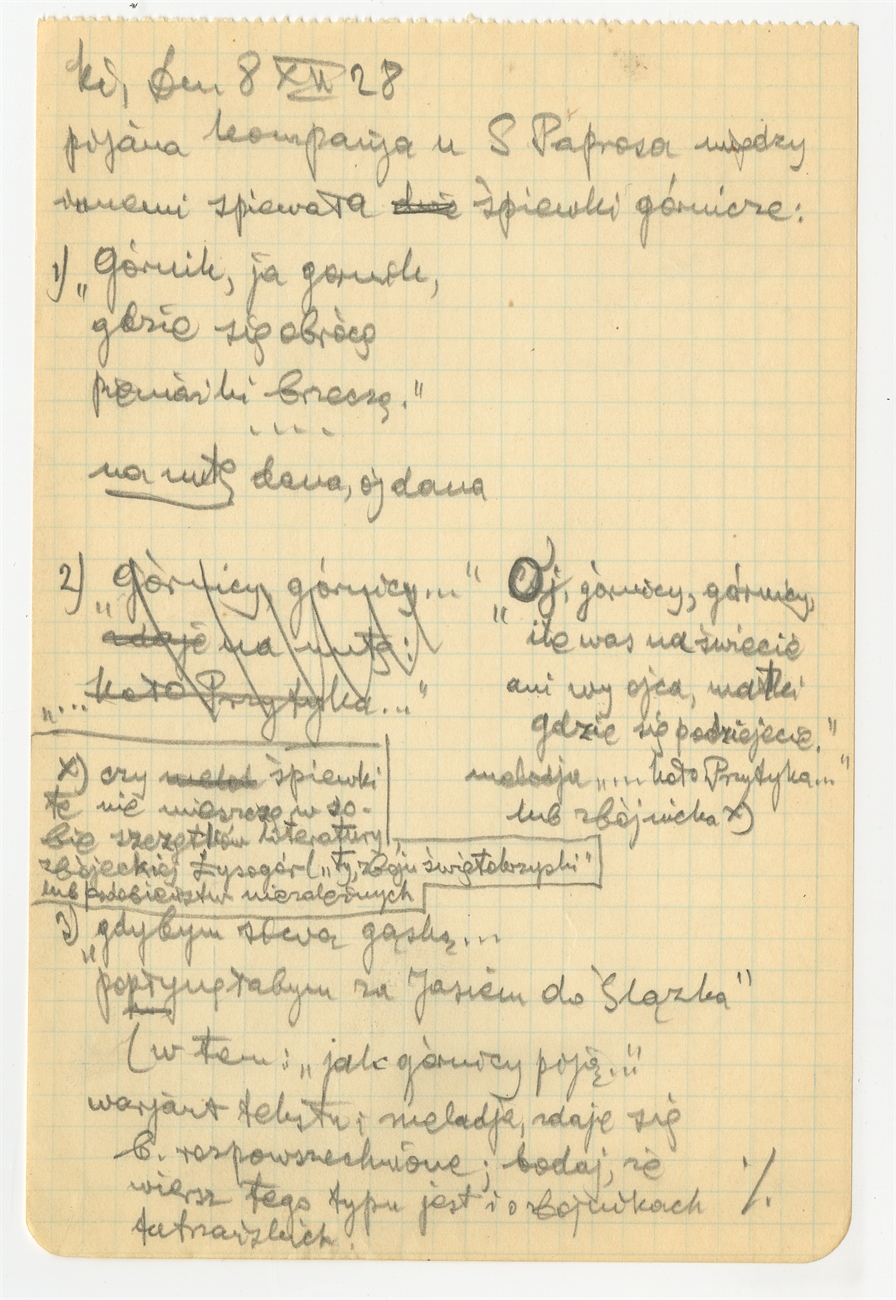 ki, dn 8 XII 28
pijàna kompanja u S Paprosa między
innemi śpiewała dwie śpiewki górnicze:
1) „Górnik, ja gornik,
gdzie się obrócę
pieniążki brzęczą."
. . . .
na nutę dana, oj dana
2) „Górnicy, górnicy..."
zdaje na nutę:
„... koło Przytyka..."
„Oj, górnicy, górnicy,
ile was na świecie
ani wy ojca, matki
gdzie się podziejecie."
melodja „... koło Przytyka..."
lub zbójnicka x)
x) czy melod śpiewki
te nie mieszczą w so-
bie szczętków literatury,
zbójeckiej Łysogór („ty, zbóju świętokrzyski"
lub podobieństw niezależnych
3) „gdybym siwą gąską...
popłynęłabym za Jasiem do Śląska"
(w tem: „jak górnicy piją..."
warjant tekstu i melodje, zdaje się
b. rozpowszechnione; bodaj, że
wiersz tego typu jest i o zbójnikach
tatrzańskich.
./.